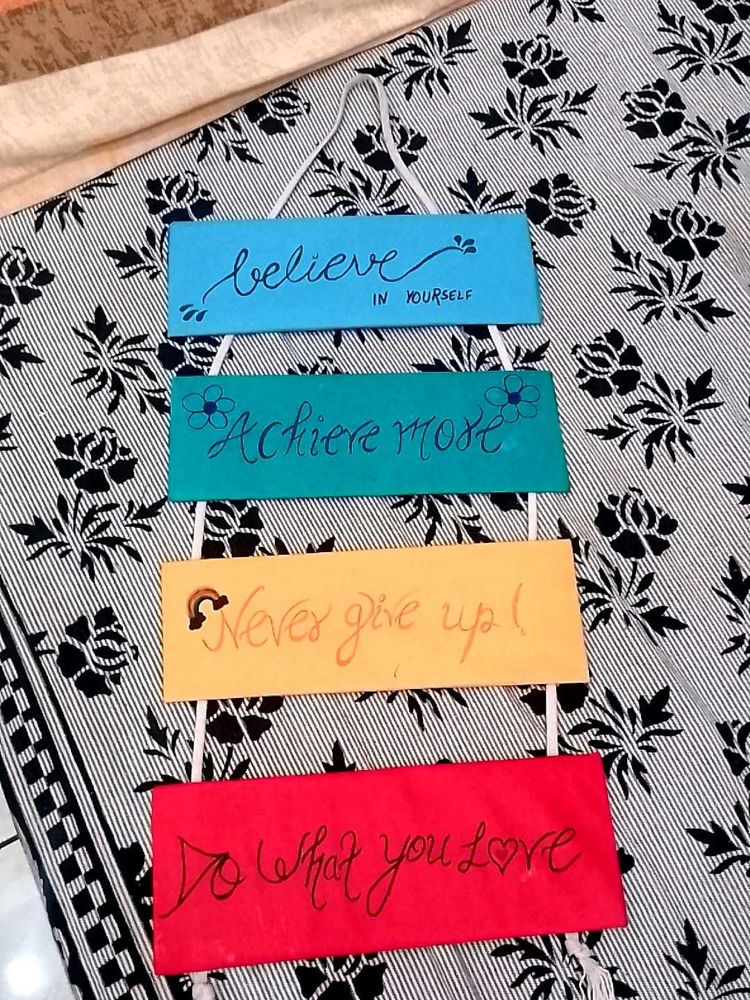 believe
IN YOURSELF
Achieve more
Never give up!
Do What you Love